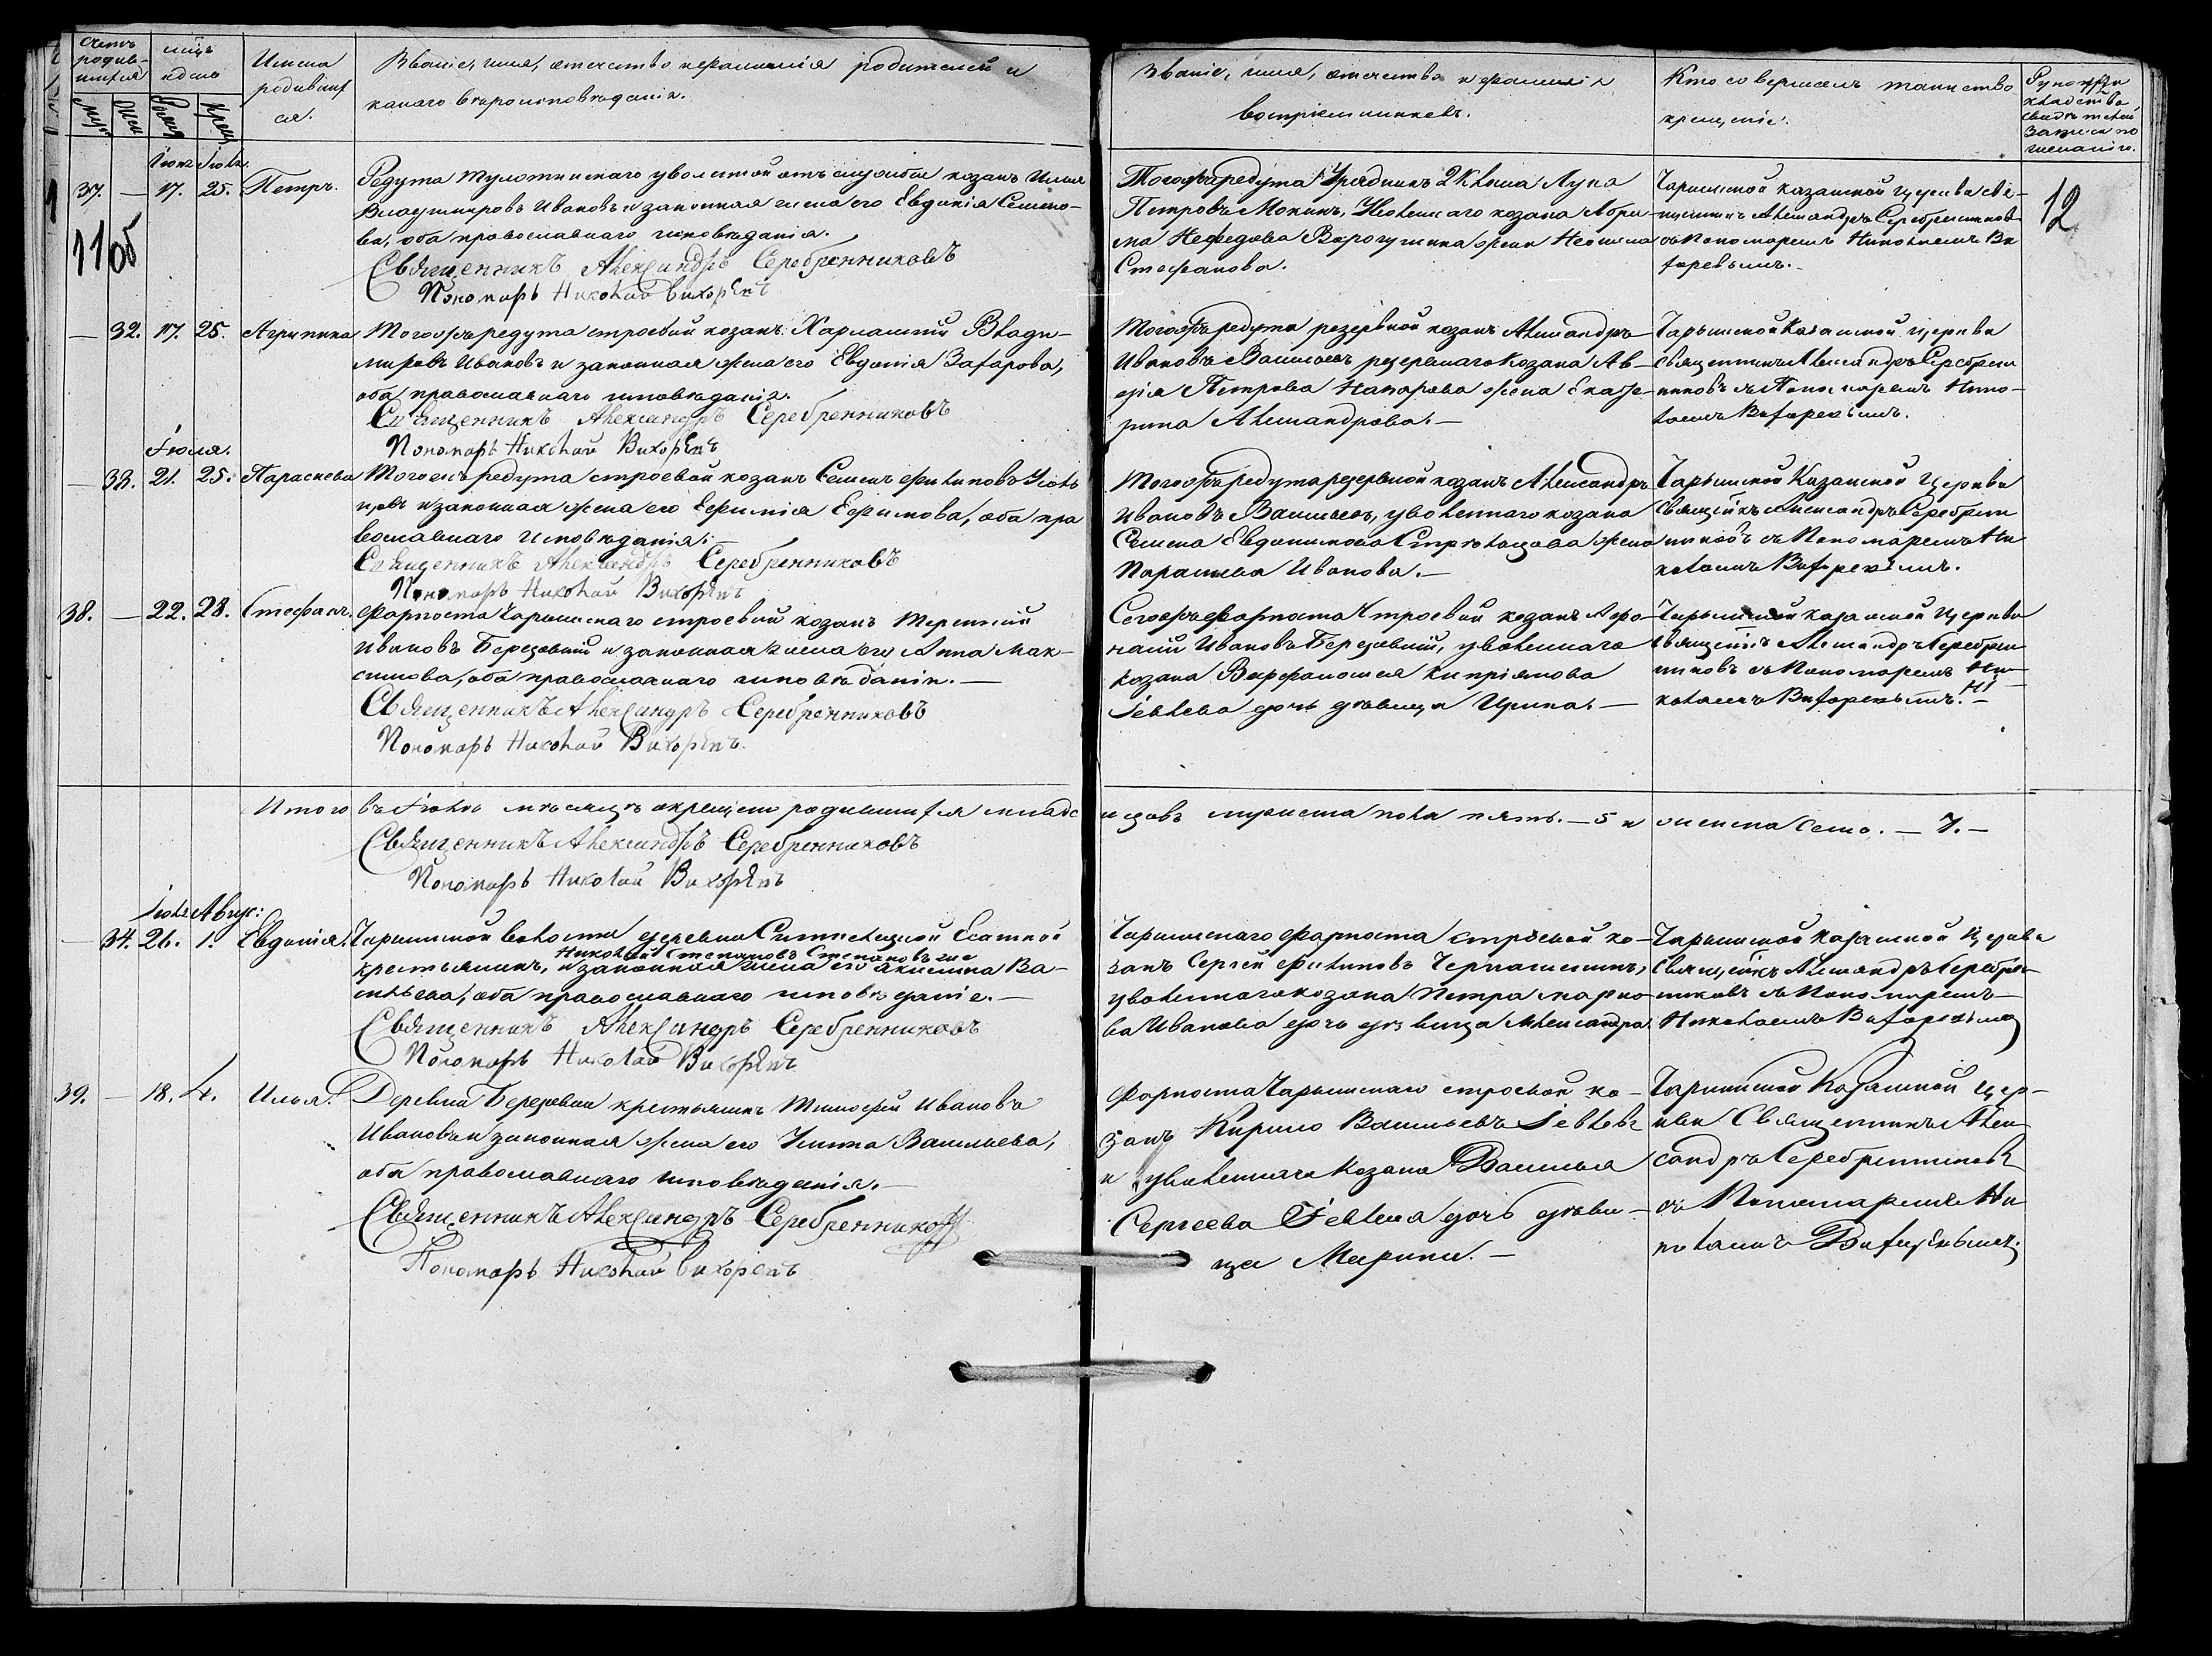 Счетъ родив-
шихся
Муж.
Жен.
Мѣсяцъ
и день
Рожд.
Крещ.
Имена
родивших
ся.
Званіе, имя, отечество и фамилія родителей и
какаго вѣроисповѣданія.
Званіе, имя, отечество и фамилія
воспріемниковъ.
Кто совершалъ таинство
крещенія.
Рукопри
кладство
свидѣтелей
записи по
желанію.
Іюня Іюля.
37. — 17. 25. Петръ.
Редута Тулатинскаго уволенной отъ службы казакъ Илья
Владимировъ Ивановъ и законная жена его Евдокія Семено-
ва, оба православнаго исповѣданія.
Священникъ Александръ Серебренниковъ
Пономарь Николай Вихоревъ
Тогожъ редута Урядникъ 2 Класса Лука
Петровъ Мокинъ, казака Абра
ма Нефедова Ворогушина жена
Стефанова.
Чарышской казанской церкви свя-
щенникъ Александръ Серебренниковъ
съ Пономаремъ Николаемъ Ви
хоревымъ.
12
116об
— 32. 17. 25. Агрипина
Тогожъ редута строевой козакъ Харлампій Влади-
мировъ Ивановъ и законная жена его Евдокія Захарова,
оба православнаго исповѣданія.
Священникъ Александръ Серебренниковъ
Пономарь Николай Вихоревъ
Тогожъ редута резервной козакъ Александръ
Ивановъ Васильевъ, резервнаго козака Ав-
дія Петрова жена Екате-
рина Александрова. —
Чарышской Казанской церкви
священникъ Александръ Серебрен
никовъ съ Пономаремъ Нико-
лаемъ Вихоревымъ.
Іюля.
— 33. 21. 25. Параскева
Тогожъ редута строевой козакъ Семенъ Филиповъ
и законная жена его Ефимія Ефимова, оба пра
вославнаго исповѣданія.
Священникъ Александръ Серебренниковъ
Пономарь Николай Вихоревъ
Тогожъ редута резервной козакъ Александръ
Ивановъ Васильевъ, уволеннаго козака
Семена Евдокимова жена
Параскева Иванова. —
Чарышской Казанской Церкви
Священникъ Александръ Серебрен
никовъ съ Пономаремъ Ни
колаемъ Вихоревымъ.
38. — 22. 28. Стефанъ.
Форпоста Чарышскаго строевой козакъ Терентій
Ивановъ Березовскій и законная жена его Анна Мак-
симова, оба православнаго исповѣданія. —
Священникъ Александръ Серебренниковъ
Пономарь Николай Вихоревъ.
Сегожъ форпоста Строевой козакъ Афо-
насій Ивановъ Березовскій, уволеннаго
козака Варфоломея Кипріянова
Іевлева дочь дѣвица Ирина. —
Чарышской казанской Церкви
Священникъ Александръ Серебрен
никовъ съ Пономаремъ Ни-
колаемъ Вихоревымъ. —
Итого въ Іюлѣ мѣсяцѣ окрещено родившихся младе нцовъ мужеска пола пять. — 5 и женска семь. — 7. —
Священникъ Александръ Серебренниковъ
Пономарь Николай Вихоревъ
Іюля Авгус:
— 34. 26. 1. Евдокія.
Чарышской волости деревни
Николай Степановъ Степановъ же
крестьянинъ, и законная жена его Акилина Ва-
сильева, оба православнаго исповѣданія. —
Священникъ Александръ Серебренниковъ
Пономарь Николай Вихоревъ
Чарышскаго Форпоста строевой ко-
закъ Сергей Филиповъ
уволеннаго козака Петра Марко-
ва Иванова дочь дѣвица Александра.
Чарышской Казанской Церкви
Священникъ Александръ Серебрен-
никовъ съ Пономаремъ
Николаемъ Вихоревымъ
39. — 18. 4. Илья.
Деревни Березовки крестьянинъ Тимофей Ивановъ
Ивановъ и законная жена его Улита Васильева,
оба православнаго исповѣданія. —
Священникъ Александръ Серебренниковъ
Пономарь Николай Вихоревъ
Форпоста Чарышскаго строевой ко-
закъ Кирило Васильевъ Іевлевъ
и уволеннаго козака Василья
Сергеева Іевлева дочь дѣви-
ца Марина. —
Чарышской Казанской Цер-
кви Священникъ Алек
сандръ Серебренниковъ
съ Пономаремъ Ни
колаемъ Вихоревымъ.